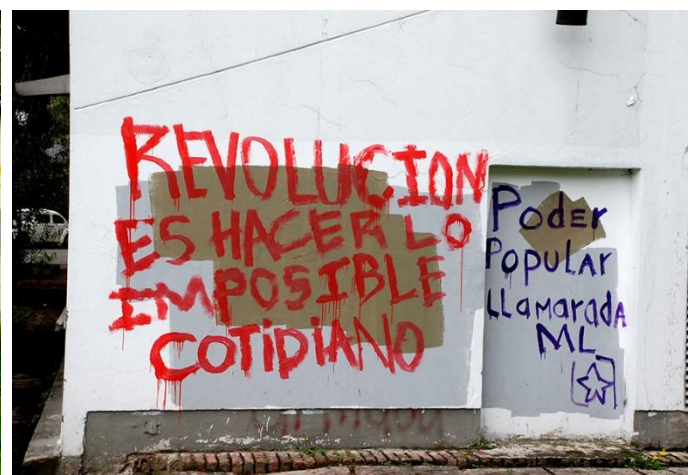 REVOLUCION
ES HACER LO
IMPOSIBLE
COTIDIANO
Poder
Popular
LLamarada
ML